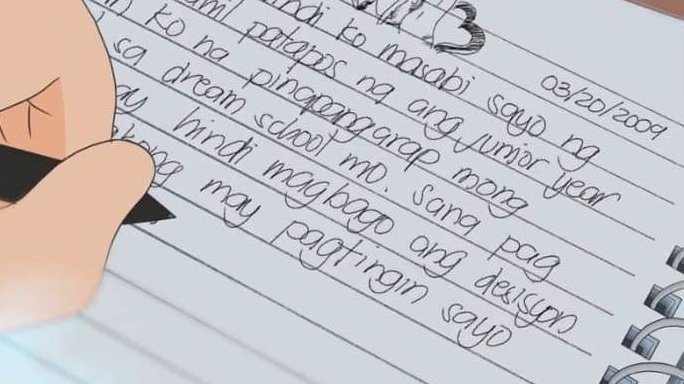 03/20/2009
ko masabi sayo ng
patapos na ang junior year
ko na pinapangarap mong
sa dream school mo. sana pag
hindi magbago ang desisyon
may pagtingin sayo